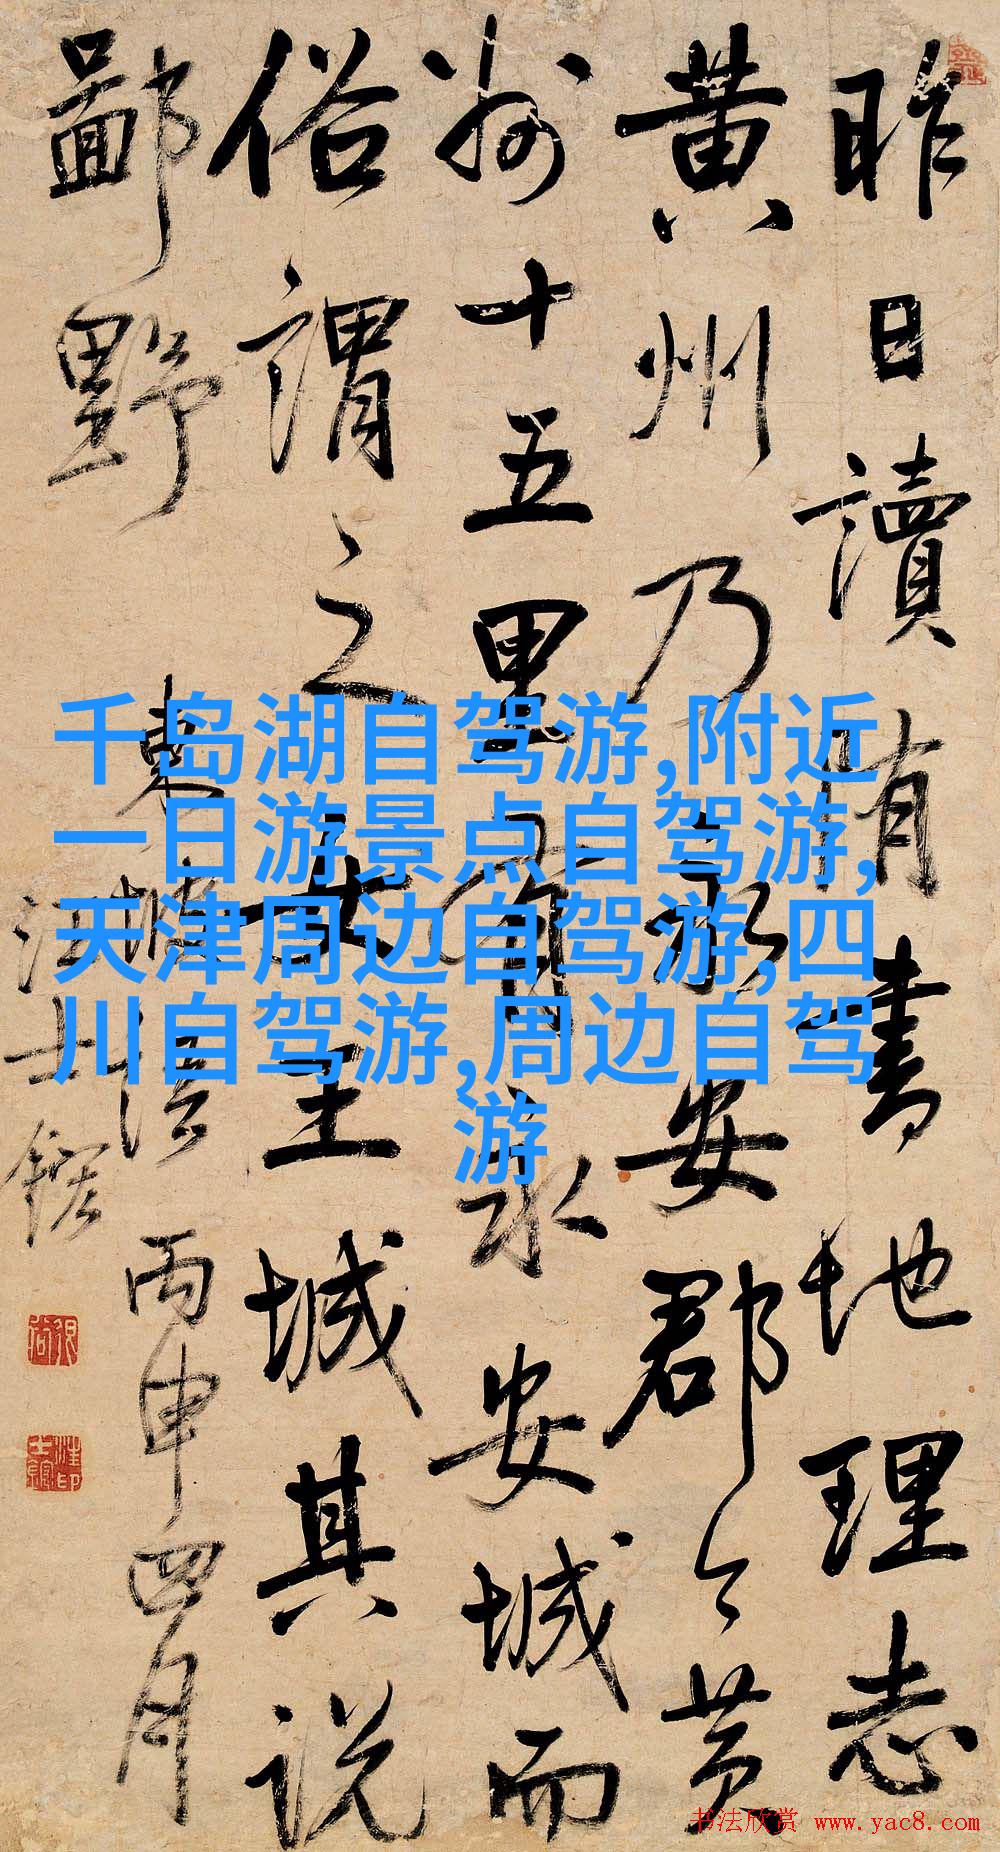 昨日讀隋書地理志
黄州乃永安郡々黄
州十五里有永安城而
俗謂之女王城其説
鄙野
東坡語丙申四月
汪士鋐
千岛湖自驾游,附近
一日游景点自驾游,
天津周边自驾游,四
川自驾游,周边自驾
游
书法欣赏 www.yac8.com